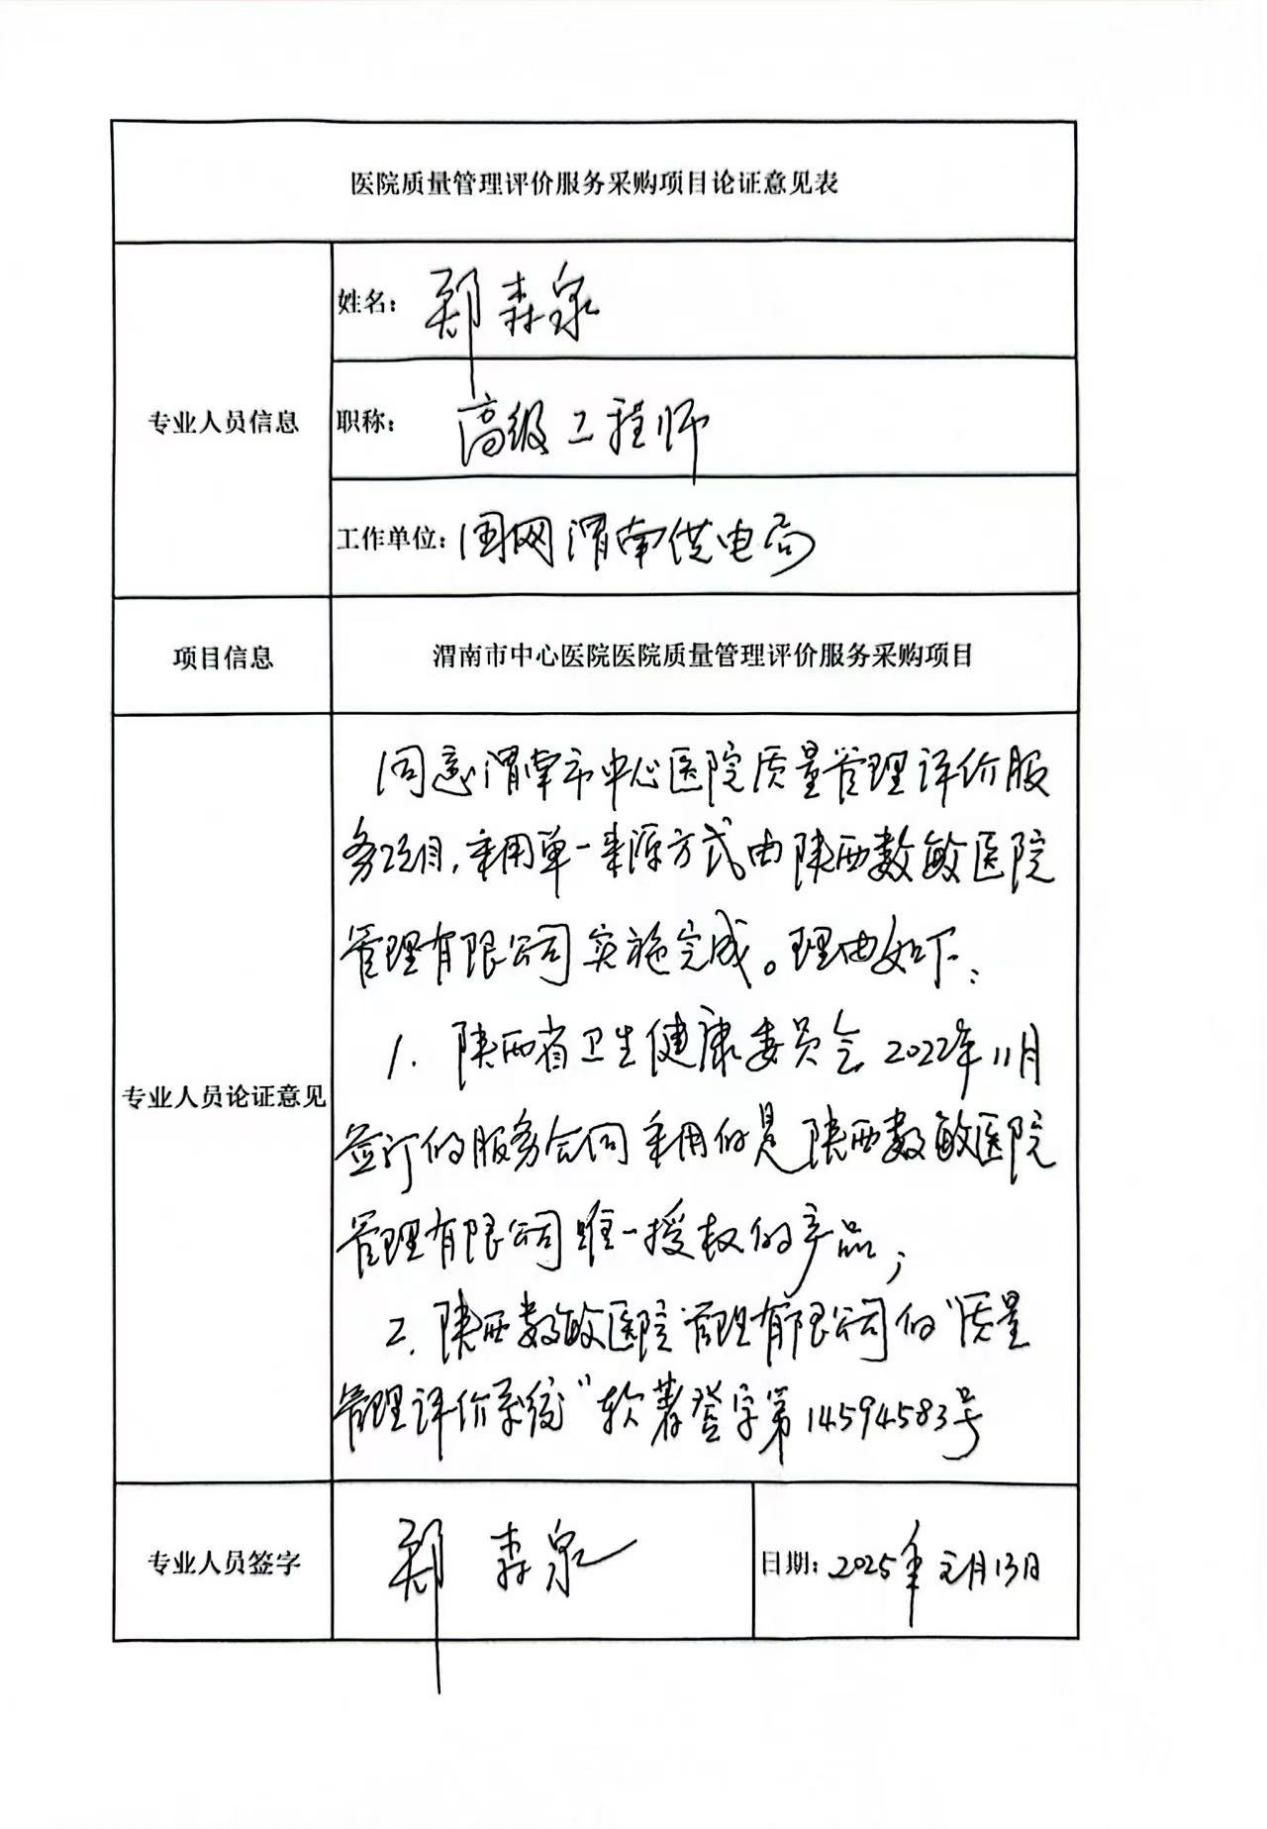 医院质量管理评价服务采购项目论证意见表
专业人员信息
姓名：郑森泉
职称：高级工程师
工作单位：国网渭南供电局
项目信息
渭南市中心医院医院质量管理评价服务采购项目
专业人员论证意见
同意渭南市中心医院质量管理评价服
务项目，采用单一来源方式由陕西数敏医院
管理有限公司实施完成。理由如下：
1. 陕西省卫生健康委员会2022年11月
签订的服务合同采用的是陕西数敏医院
管理有限公司唯一授权的产品；
2. 陕西数敏医院管理有限公司的“质量
管理评价系统”软著登字第14594583号
专业人员签字
郑森泉
日期：2025年元月13日